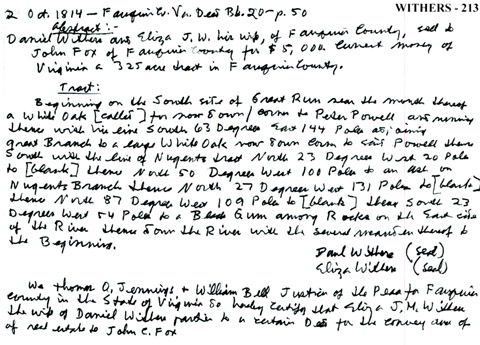 WITHERS - 213
2 Oct. 1814 - Fauquier Co. Va. Deed Bk. 20 - p. 50
Abstract:-
Daniel Withers and Eliza J. W. his wife, of Fauquier County, sell to
John Fox of Fauquier County for $5,000. Current money of
Virginia a 325 acre tract in Fauquier County.
Tract:
Beginning on the South side of Great Run near the mouth thereof
a White Oak [called] for now down / corner to Peter Powell and running
thence with his line South 63 Degrees East 144 Poles adjoining
great Branch to a large White Oak now down corn to said Powell thence
South with the line of Nugents tract North 23 Degrees West 20 Poles
to [blank] thence North 50 Degrees West 100 Poles to an ash on
Nugents Branch thence North 27 Degrees West 131 Poles to [blank]
thence North 87 Degrees West 109 Poles to [blank] thence South 23
Degrees West 64 Poles to a Black Gum among Rocks on the East side
of the River thence down the River with the several meanders thereof to
the Beginning.
Danl Withers (seal)
Eliza Withers (seal)
We Thomas O. Jennings + William Bell Justices of the Peace for Fauquier
County in the State of Virginia do hereby certify that Eliza J. M. Withers
the wife of Daniel Withers parties to a certain Deed for the conveyance of
real estate to John C. Fox